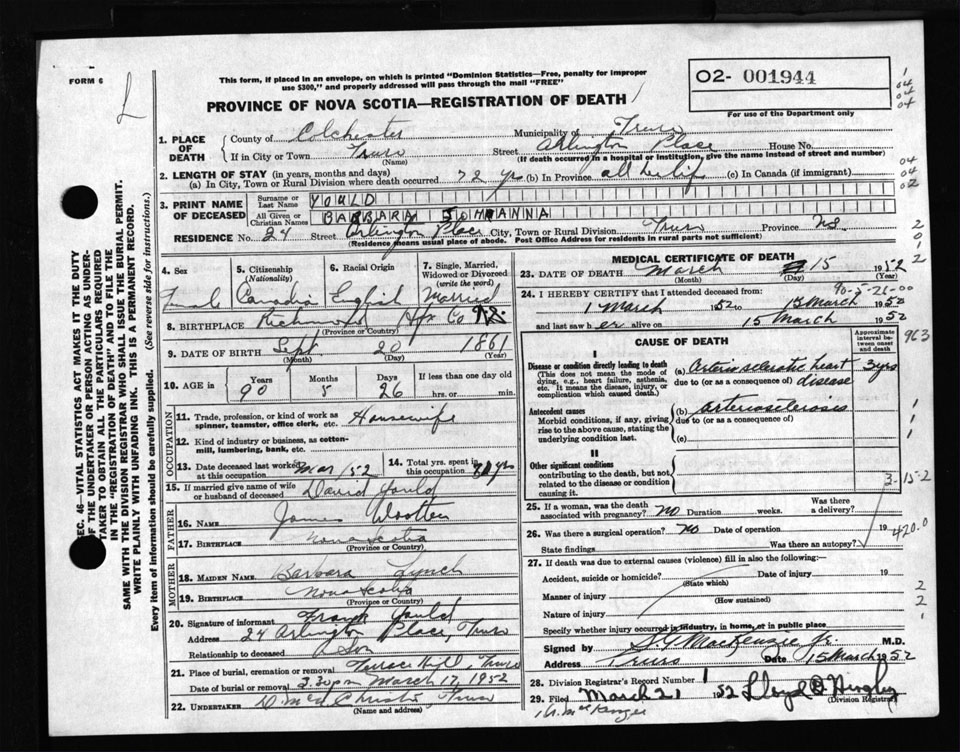 FORM 6
L
This form, if placed in an envelope, on which is printed "Dominion Statistics—Free, penalty for improper
use $300," and properly addressed will pass through the mail "FREE"
PROVINCE OF NOVA SCOTIA—REGISTRATION OF DEATH
02- 001944
For use of the Department only
1. PLACE OF DEATH
County of Colchester Municipality of Truro
If in City or Town Truro Street Arlington Place House No.
(Name) (If death occurred in a hospital or institution, give the name instead of street and number)
2. LENGTH OF STAY (in years, months and days)
(a) In City, Town or Rural Division where death occurred 72 yrs (b) In Province all her life (c) In Canada (if immigrant)
3. PRINT NAME OF DECEASED
Surname or Last Name YOULD
All Given or Christian Names BARBARA JOHANNA
RESIDENCE No. 24 Street Arlington Place City, Town or Rural Division Truro Province NS
(Residence means usual place of abode. Post Office Address for residents in rural parts not sufficient)
4. Sex Female
5. Citizenship (Nationality) Canadian
6. Racial Origin English
7. Single, Married, Widowed or Divorced (write the word) Married
8. BIRTHPLACE Richmond Hfx Co N.S.
(Province or Country)
9. DATE OF BIRTH Sept 20 1861
(Month) (Day) (Year)
10. AGE in Years 90 Months 5 Days 26 If less than one day old hrs. or min.
OCCUPATION
11. Trade, profession, or kind of work as spinner, teamster, office clerk, etc. Housewife
12. Kind of industry or business, as cotton-mill, lumbering, bank, etc.
13. Date deceased last worked at this occupation Mar 1 52
14. Total yrs. spent in this occupation yrs
15. If married give name of wife or husband of deceased David Yould
FATHER
16. NAME James Wootten
17. BIRTHPLACE Nova Scotia
(Province or Country)
MOTHER
18. MAIDEN NAME Barbara Lynch
19. BIRTHPLACE Nova Scotia
(Province or Country)
20. Signature of informant Frank Yould
Address 24 Arlington Place, Truro
Relationship to deceased Son
21. Place of burial, cremation or removal Terrace Hill, Truro
Date of burial or removal 3.30 pm March 17, 1952
22. UNDERTAKER D McD Christie, Truro
(Name and address)
MEDICAL CERTIFICATE OF DEATH
23. DATE OF DEATH March 15 1952
(Month) (Day) (Year)
90-5-26-00
24. I HEREBY CERTIFY that I attended deceased from:
1 March 1952 to 15 March 1952
and last saw her alive on 15 March 1952
CAUSE OF DEATH
Approximate interval between onset and death
963
I
Disease or condition directly leading to death
(This does not mean the mode of dying, e.g., heart failure, asthenia, etc. It means the disease, injury, or complication which caused death.)
(a) Arteriosclerotic heart 3 yrs
due to (or as a consequence of) disease
Antecedent causes
Morbid conditions, if any, giving rise to the above cause, stating the underlying condition last.
(b) Arteriosclerosis
due to (or as a consequence of)
(c)
II
Other significant conditions
contributing to the death, but not related to the disease or condition causing it.
3-15-2
25. If a woman, was the death associated with pregnancy? NO Duration weeks. Was there a delivery?
26. Was there a surgical operation? No Date of operation 19
State findings Was there an autopsy?
420.0
27. If death was due to external causes (violence) fill in also the following:—
Accident, suicide or homicide? Date of injury 19
(State which)
Manner of injury
(How sustained)
Nature of injury
Specify whether injury occurred in industry, in home, or in public place
Signed by MacKenzie Jr. M.D.
Address Truro Date 15 March 1952
28. Division Registrar's Record Number 1
29. Filed March 21 1952 Lloyd
(Division Registrar)
SEC. 46—VITAL STATISTICS ACT MAKES IT THE DUTY
OF THE UNDERTAKER OR PERSON ACTING AS UNDER-
TAKER TO OBTAIN ALL THE PARTICULARS REQUIRED
IN THE "REGISTRATION OF DEATH" AND TO FILE THE
SAME WITH THE DIVISION REGISTRAR WHO SHALL ISSUE THE BURIAL PERMIT.
WRITE PLAINLY WITH UNFADING INK. THIS IS A PERMANENT RECORD.
Every item of information should be carefully supplied. (See reverse side for instructions.)